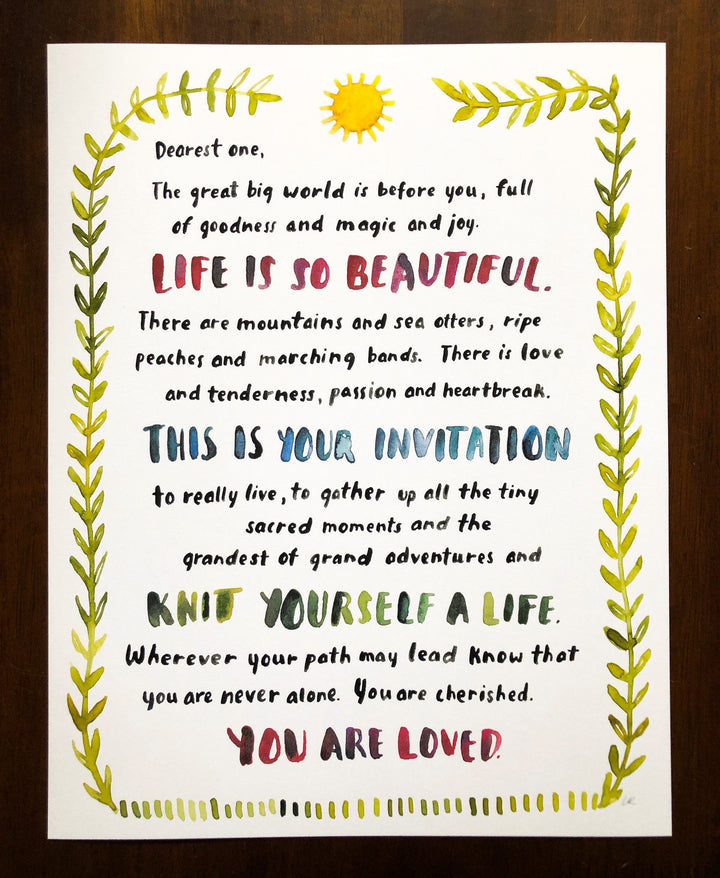 Dearest one,
The great big world is before you, full
of goodness and magic and joy.
LIFE IS SO BEAUTIFUL.
There are mountains and sea otters, ripe
peaches and marching bands. There is love
and tenderness, passion and heartbreak.
THIS IS YOUR INVITATION
to really live, to gather up all the tiny
sacred moments and the
grandest of grand adventures and
KNIT YOURSELF A LIFE.
Wherever your path may lead know that
you are never alone. You are cherished.
YOU ARE LOVED.